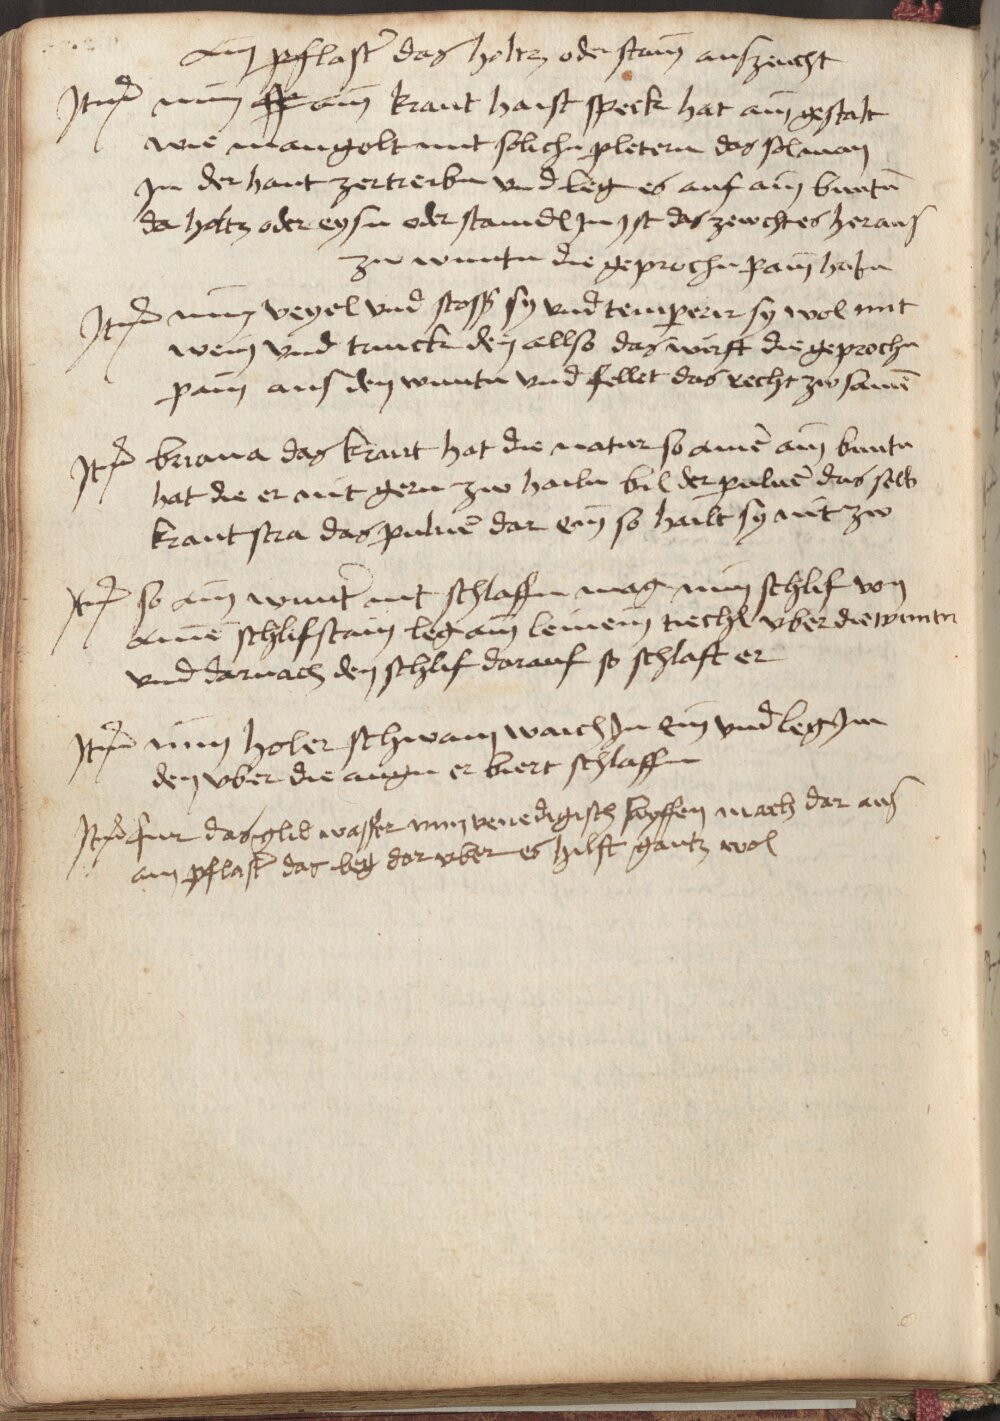 Ain pflast̄ das holtz oder stain auszeucht
Item nim ain kraut haist speck hat ain gestalt
wie mangolt mit solichn pletern das sol man
In der hant zertreibn vnd leg es auf ain buntn̄
da holtz oder eysn oder staindl In ist das zewcht es heraus
zw wuntn die geprochn pain habn
Item nim veyel vnd stoss sy vnd temperir sy wol mit
wein vnd trinckh den allso das wirft die geprochn
pain aus den wuntn vnd fellet das recht zw samē
Item briana das kraut hat die natur so ainē ain buntn
hat die er nit gern zw hailn bil der puluē das selb
kraut stra das puluē dar ein so hailt sy nit zw
Item so ain wunt̄ nit schlaffn mag nim schlif von
ainē schlifstain leg ain leinein tiechl vber die wuntn
vnd darnach den schlif darauf so schlaft er
Item nim holer schwam waich In ein vnd leg Im
den vber die augn er biert schlaffn
Item fur das glid wasser nim venedigisch soyffen mach dar aus
ain pflast̄ das leg dar vber es hilft gantz wol